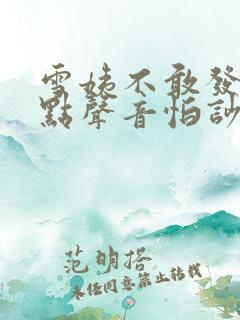 雪姨不敢發
點聲音怕訬
范明搭
未任同意禁止转载